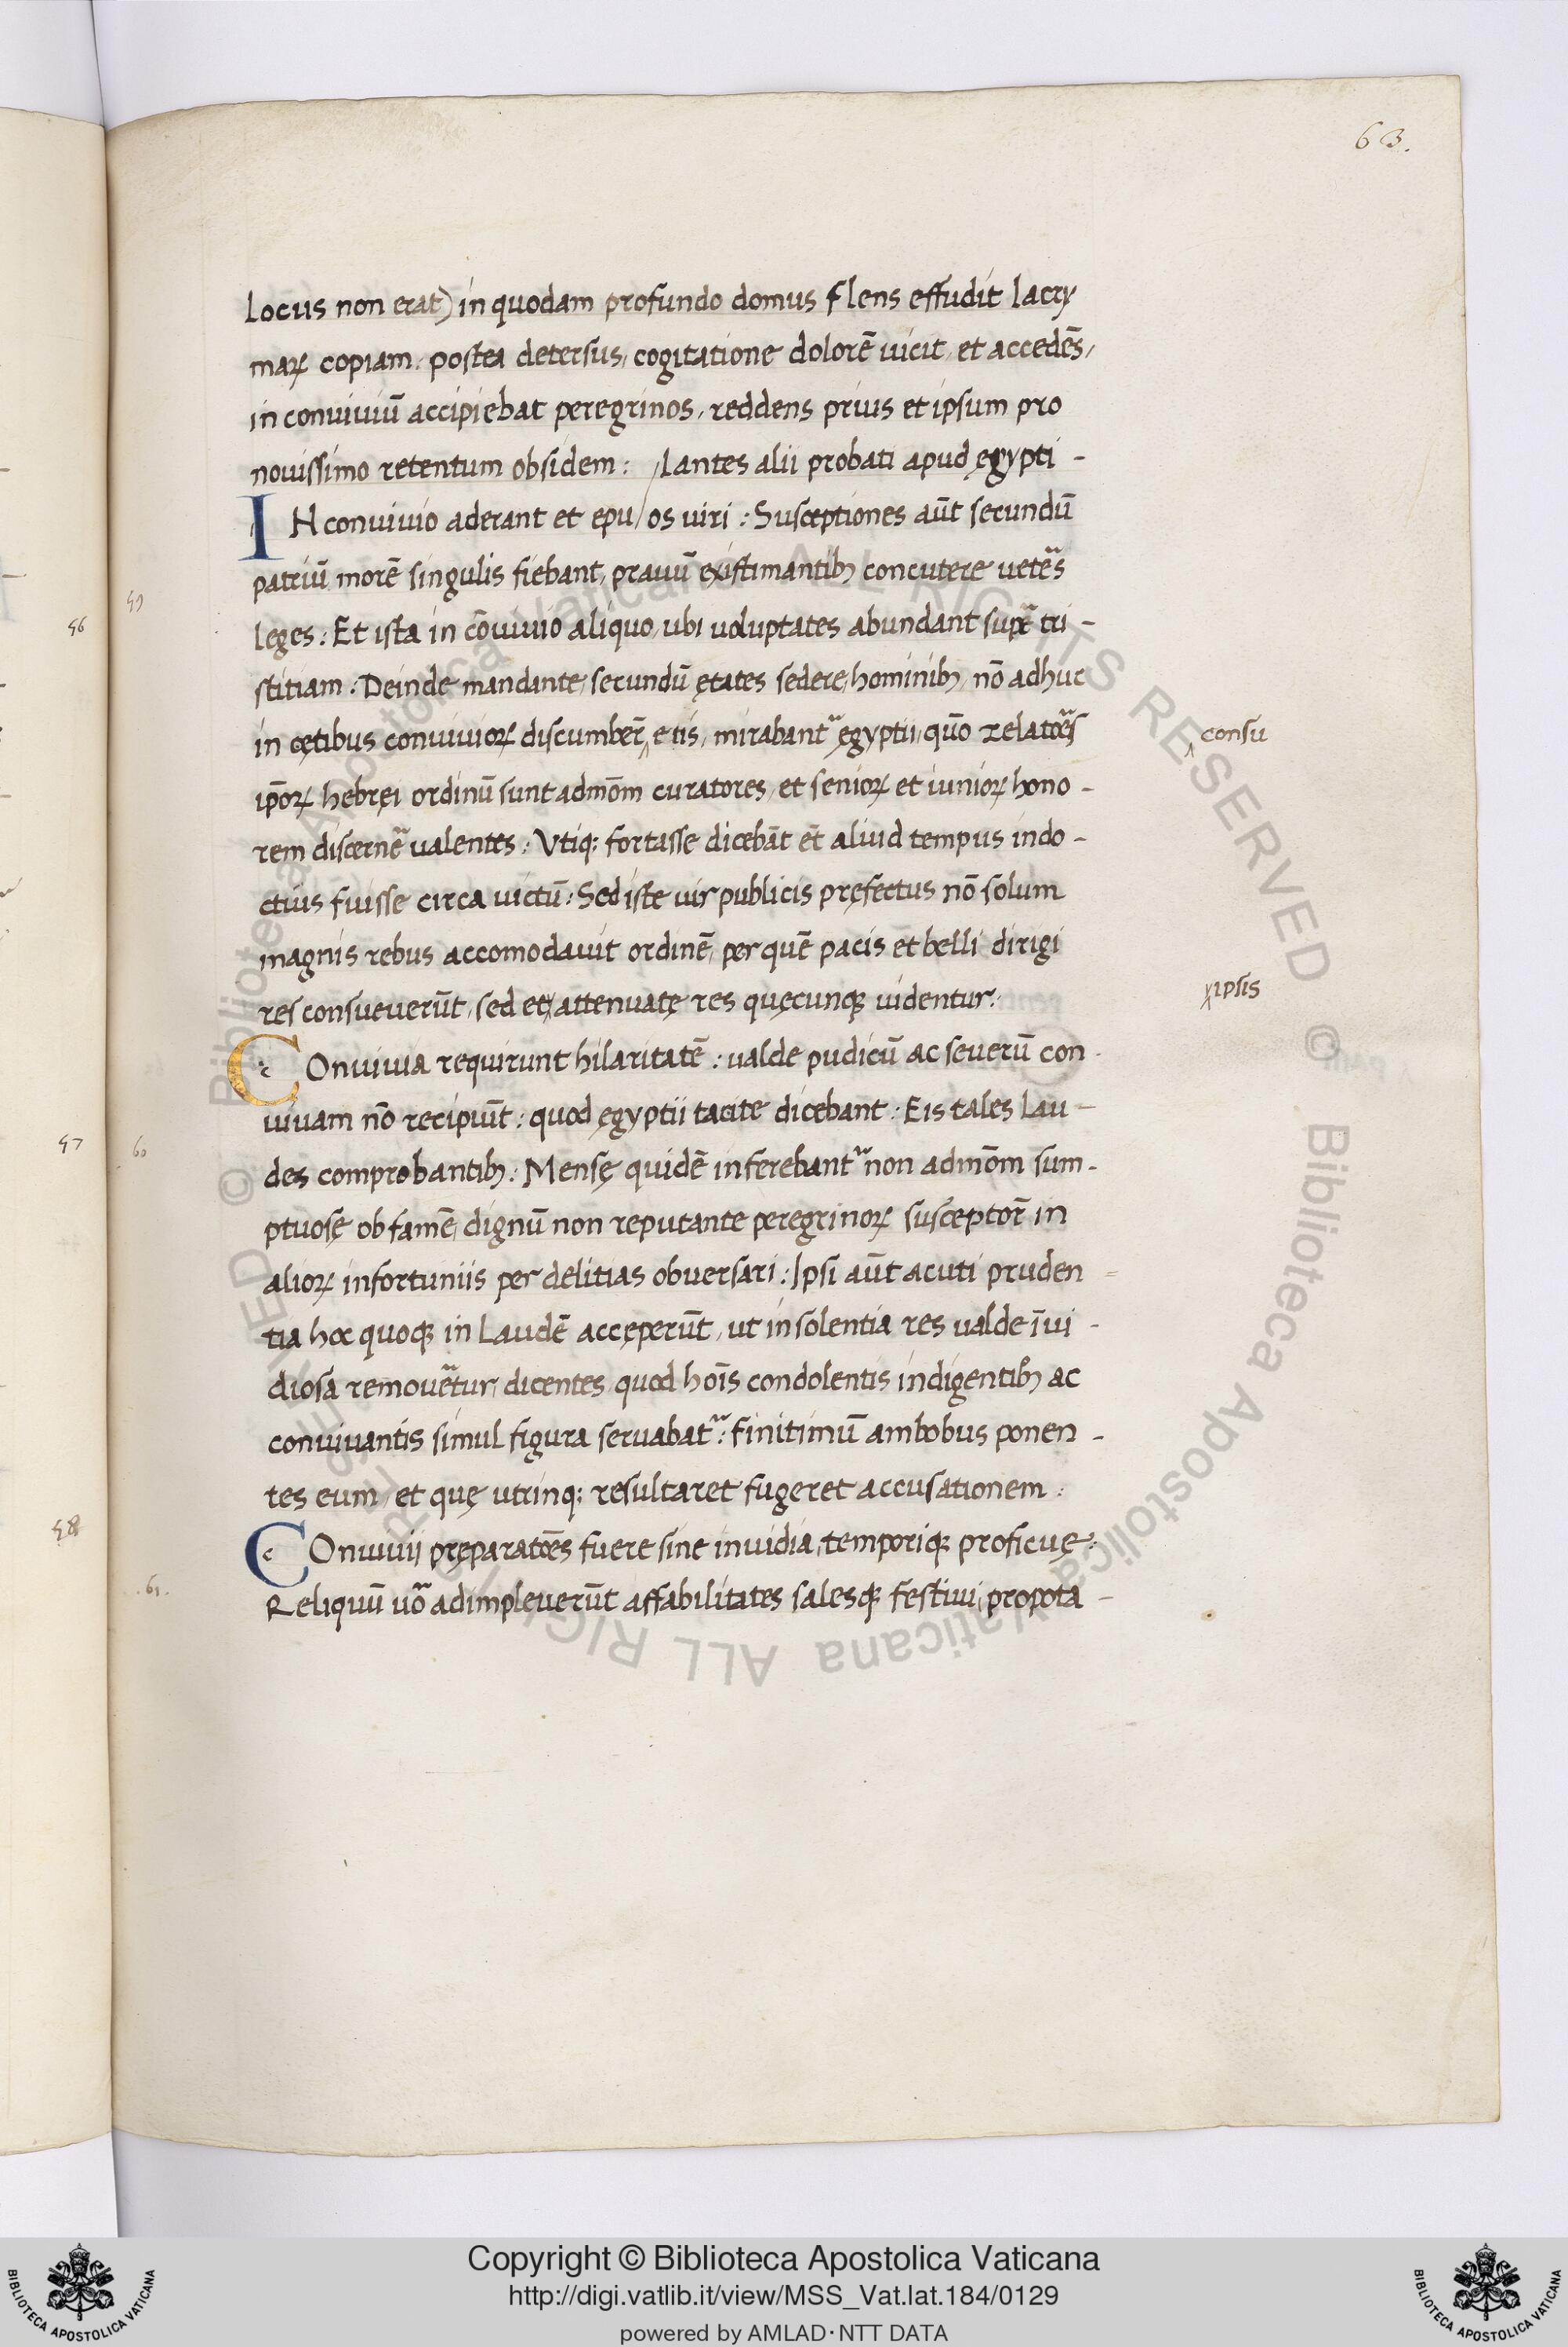 63.
locus non erat) in quodam profundo domus flens effudit lacry
maꝝ copiam. postea detersus, cogitatione dolorē uicit, et accedēs,
in conuiuiū accipiebat peregrinos, reddens prius et ipsum pro
nouissimo retentum obsidem: /lantes alii probati apud ęgypti -
IN conuiuio aderant et epu/os uiri: Susceptiones aūt secundū
patriū morē singulis fiebant, prauū existimantibꝫ concutere uetẽs
leges: Et ista in cōuiuio aliquo, ubi uoluptates abundant supᷓ tri -
stitiam: Deinde mandante, secundū ętates sedere, hominibꝫ, nō adhuc
in cętibus conuiuioꝝ discumber̄‸etis, mirabantᷣ ęgyptii, quō relatoēs
‸consu
ip̄oꝝ hebręi ordinū sunt admōm curatores, et senioꝝ et iunioꝝ hono -
rem discernẽ ualentes: Vtiq; fortasse dicebāt et̄ aliud tempus indo -
ctius fuisse circa uictū: Sed iste uir publicis pręfectus nō solum
magnis rebus accomodauit ordinē, per quē pacis et belli dirigi
res consueuerūt, sed et attenuatę res quęcunqꝫ uidentur:
ipsis
59
COnuiuia requirunt hilaritatē: ualde pudicū ac seuerū con -
uiuam nō recipiūt: quod ęgyptii tacite dicebant: Eis tales lau -
60
des comprobantibꝫ: Mensę quidē inferebantᷣ non admōm sum -
ptuosę ob famē, dignū non reputante peregrinoꝝ susceptor̄ in
alioꝝ infortuniis per delitias obuersari: Ipsi aūt acuti pruden =
tia hoc quoqꝫ in laudē accęperūt, ut insolentia res ualde īui -
diosa remouẽtur, dicentes quod hoīs condolentis indigentibꝫ ac
conuiuantis simul figura seruabatᷣ: finitimū ambobus ponen -
tes eum, et quę utrinq; resultaret fugeret accusationem:
COnuiuij pręparatoēs fuere sine inuidia, temporiqꝫ proficuę:
61.
Reliquū uō adimpleuerūt affabilitates salesqꝫ festiui, propota -
56
57
58
© Biblioteca Apostolica Vaticana ALL RIGHTS RESERVED © Biblioteca Apostolica Vaticana ALL RIGHTS RESERVED
BIBLIOTECA APOSTOLICA VATICANA
Copyright © Biblioteca Apostolica Vaticana
http://digi.vatlib.it/view/MSS_Vat.lat.184/0129
powered by AMLAD·NTT DATA
BIBLIOTECA APOSTOLICA VATICANA